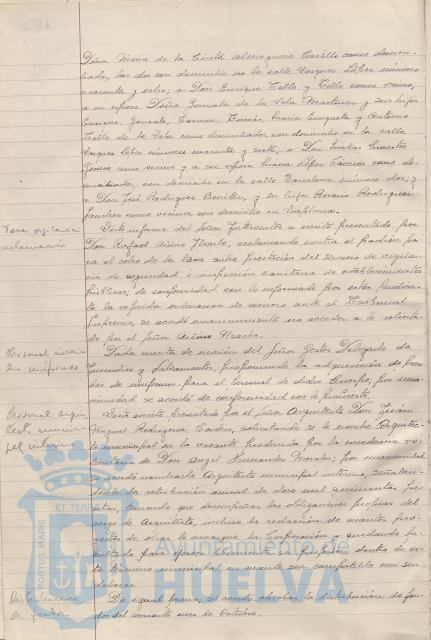 Doña María de la Cinta Almoguera Casalle como domici-
liada, las dos con domicilio en la calle Vazquez López número
cuarenta y ocho; a Don Enrique Tello y Tello como vecino,
a su esposa Doña Gonzala de la Vela Martinez y sus hijos
Enrique, Gonzala, Carmen, Tomás, María Enriqueta y Antonio
Tello de la Vela como domiciliados, con domicilio en la calle
Vazquez López número cuarenta y siete, a Don Matias
Gómez como vecino y a su esposa María López Cáceres como do-
miciliada, con domicilio en la calle Barcelona número dos; y
a Don José Rodríguez Benitez, y su hija Rosario Rodríguez
Sanchez como vecinos, con domicilio en
Tasa vigilancia
reclamación
Visto informe del Señor Interventor a escrito presentado por
Don Rafael reclamando contra el padrón pa-
ra el cobro de la tasa sobre prestación del servicio de vigilan-
cia de seguridad e inspección sanitaria de establecimientos
públicos; de conformidad con lo informado por estar pendien-
te la referida ordenanza de recurso ante el Tribunal
Supremo, se acordó unanimemente no acceder a lo solicita-
do por el Señor
Personal
uniformes
Dada cuenta de moción del Señor Gestor Delegado de
Incendios y Salvamentos, proponiendo la adquisición de pren-
das de uniforme para el personal de dicho Cuerpo, por una-
nimidad se acordó de conformidad con lo propuesto.
Personal arqui-
tecto munici-
pal interino
Visto escrito presentado por el Señor Arquitecto Don Juan
Miguel Rodríguez Cordero, solicitando se le nombre Arquitec-
to municipal en la vacante producida por la excedencia vo-
luntaria de Don Angel Hernandez Morales; por unanimidad
se acordó nombrarle Arquitecto municipal interino, señalan-
dosele la retribución anual de doce mil quinientas pese-
tas, teniendo que desempeñar las obligaciones propias del
cargo de Arquitecto, incluso la redacción de cuantos pro-
yectos de obras le encargue la Corporación y quedando fa-
cultado para ejercer libremente la profesión dentro de es-
te término municipal en cuanto sea compatible con sus
deberes.
Distribución
de fondos
De igual forma, se acordó aprobar la distribución de fon-
dos del corriente mes de Octubre.
PORTUS MARIS ET TERRAE
Ayuntamiento de
HUELVA